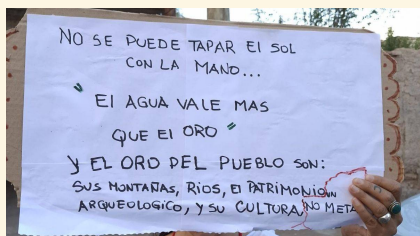 NO SE PUEDE TAPAR El SOL
CON LA MANO...
" El AGUA VALE MAS
QUE El ORO "
Y EL ORO DEL PUEBLO SON:
SUS MONTAÑAS, RIOS, El PATRIMONIO UN
ARQUEOLOGICO, Y SU CULTURA, NO META